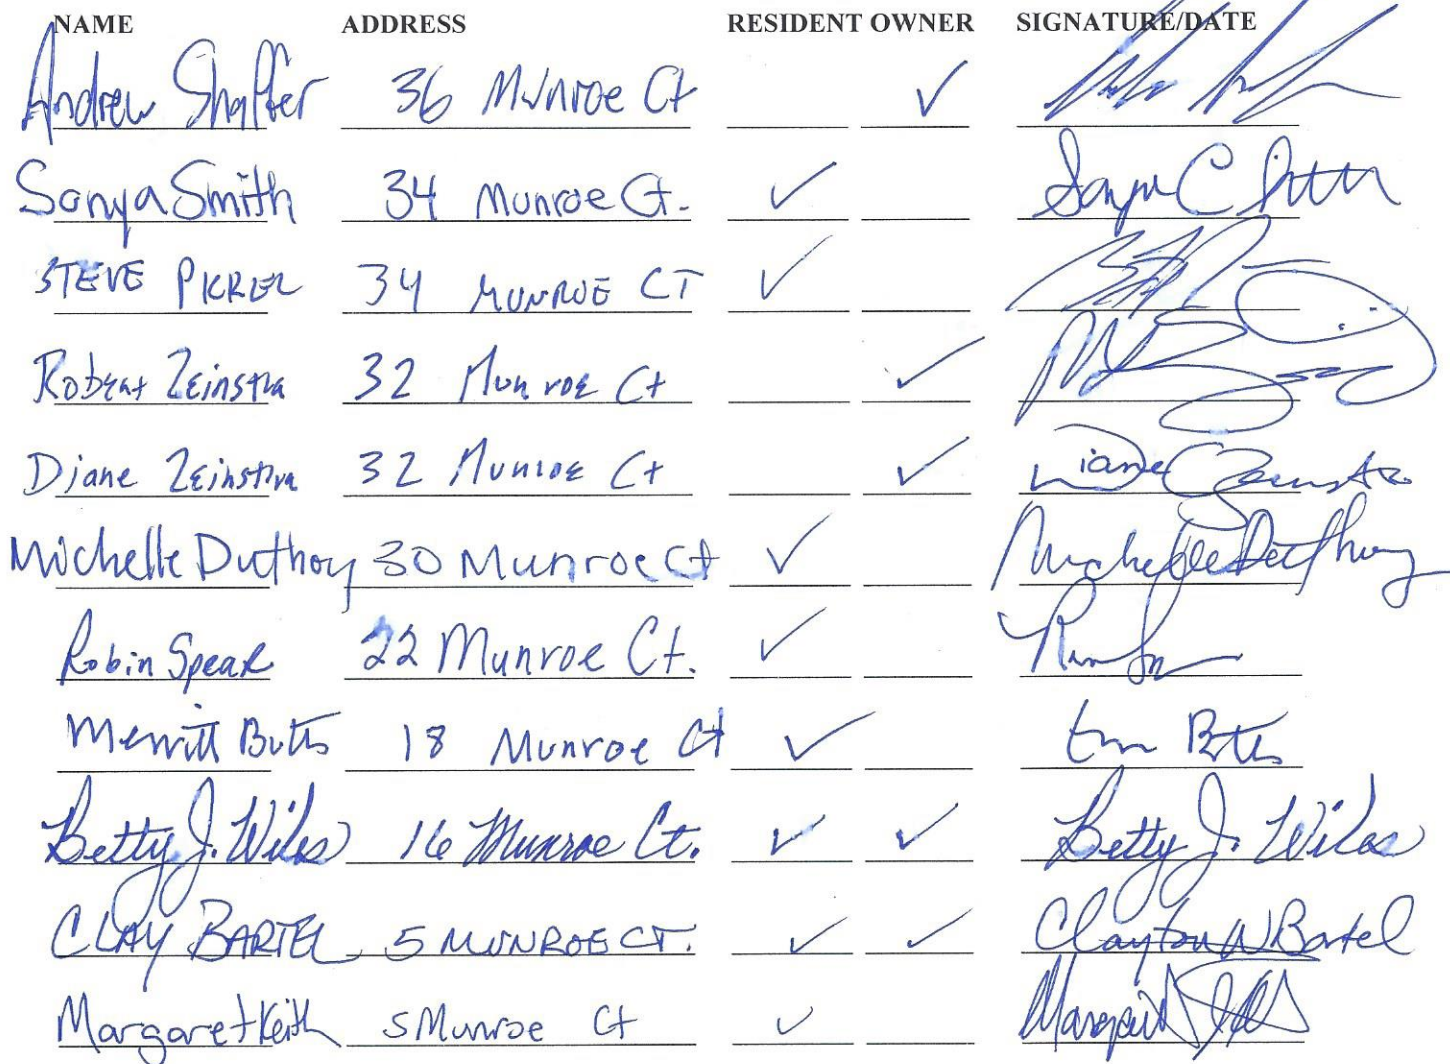 NAME ADDRESS RESIDENT OWNER SIGNATURE/DATE
Andrew Shaffer 36 Munroe Ct ✓
Sonya Smith 34 Munroe Ct. ✓ Sonya C Smith
STEVE PICREL 34 MUNROE CT ✓
Robert Zeinstra 32 Munroe Ct ✓
Diane Zeinstra 32 Munroe Ct ✓ Diane Zeinstra
Michelle Duthoy 30 Munroe Ct ✓ Michelle Duthoy
Robin Spear 22 Munroe Ct. ✓
Merritt Butts 18 Munroe Ct ✓ Butts
Betty J. Wilas 16 Munroe Ct. ✓ ✓ Betty J. Wilas
CLAY BARTEL 5 MUNROE CT. ✓ ✓ Clayton W Bartel
Margaret Keith 5 Munroe Ct ✓ Margaret